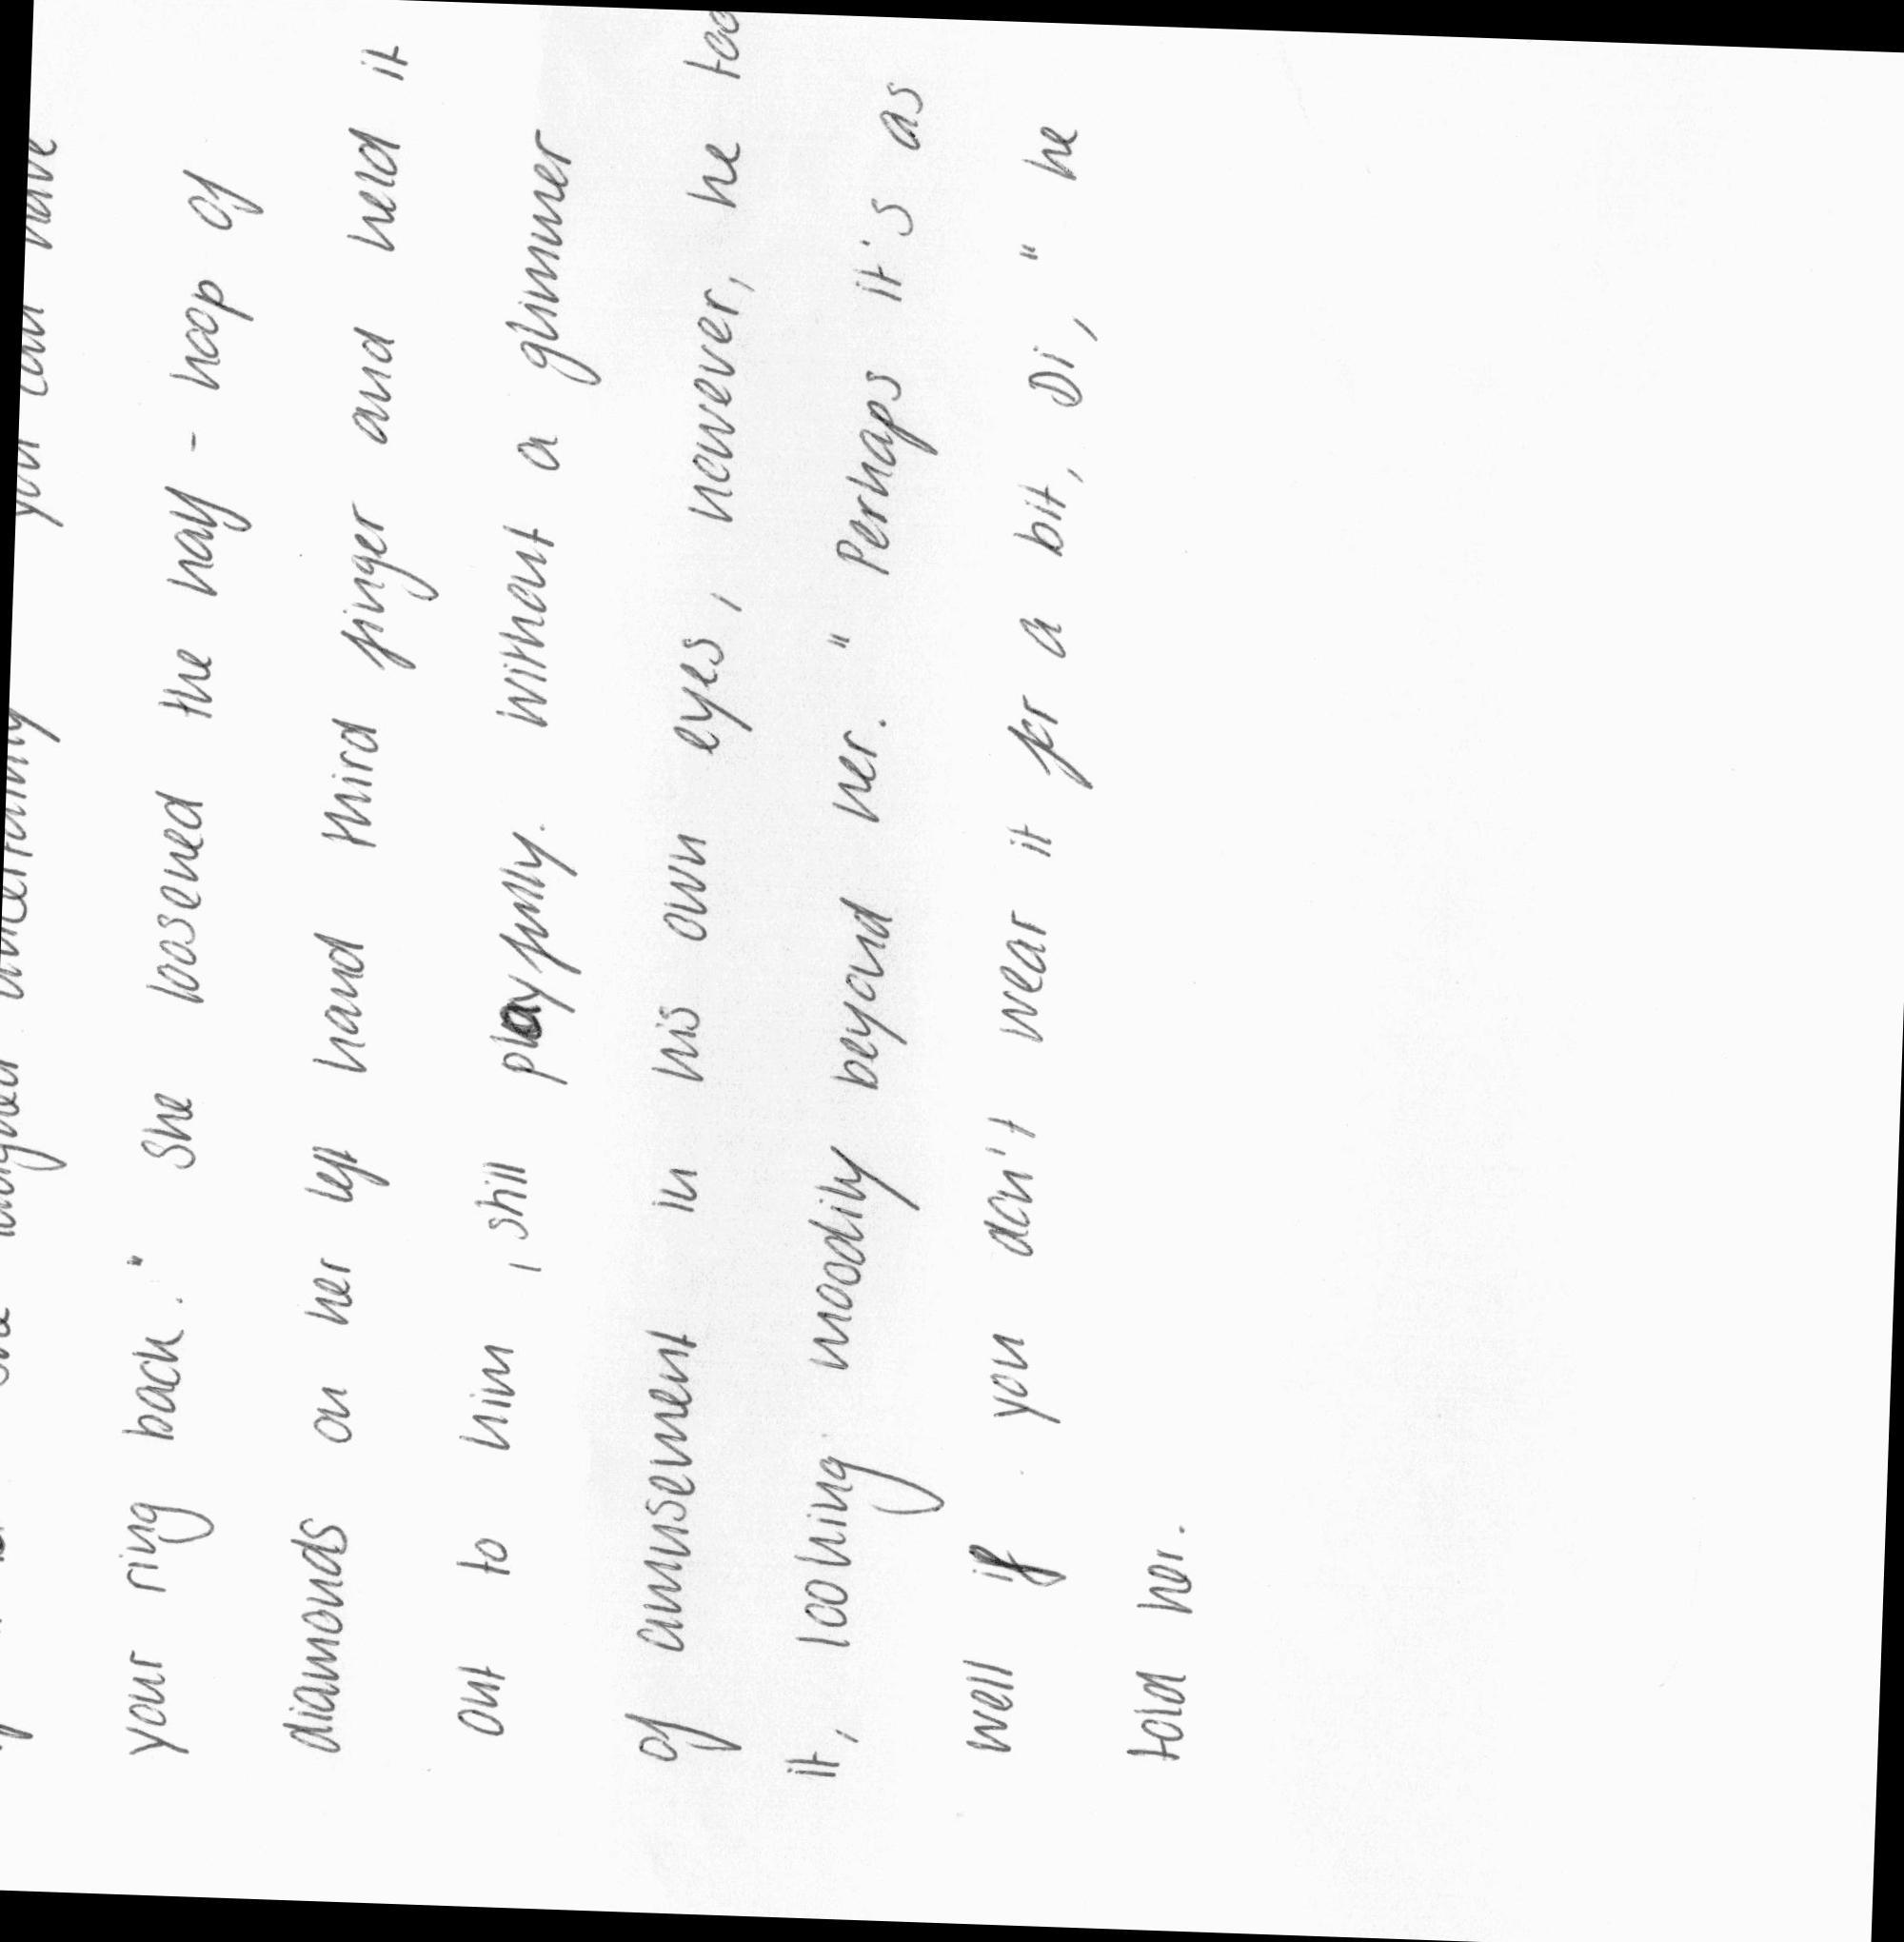 laughed uncertainly you can have
your ring back." She loosened the half-hoop of
diamonds on her left hand third finger and held it
out to him, still playfully. Without a glimmer
of amusement in his own eyes, however, he
it, looking moodily beyond her. "Perhaps it's as
well if you don't wear it for a bit, Di," he
told her.